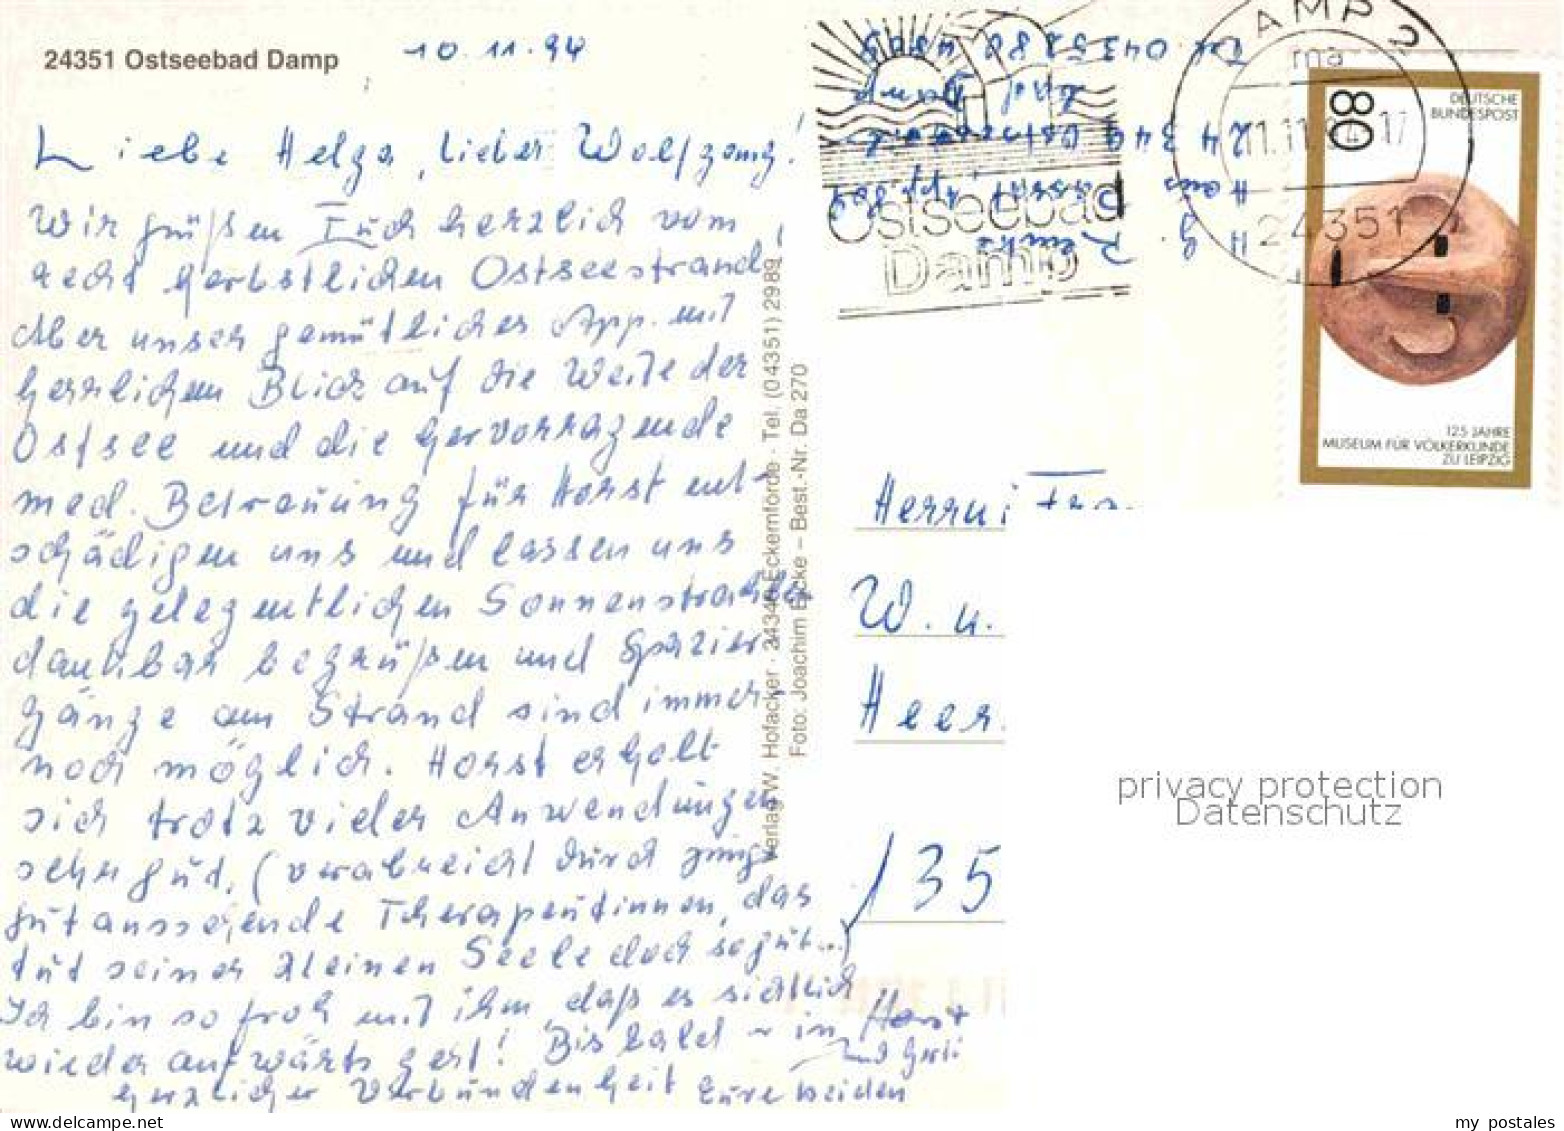 24351 Ostseebad Damp
10.11.94
Liebe Helga, lieber Wolfgang!
Wir grüßen Euch herzlich vom
recht herbstlichen Ostseestrand!
Aber unser gemütliches App. mit
herrlichem Blick auf die Weite der
Ostsee und die hervorragende
med. Betreuung für Horst ent-
schädigen uns und lassen uns
die gelegentlichen Sonnenstrahlen
dankbar begrüßen und Spazier-
gänge am Strand sind immer
noch möglich. Horst erholt
sich trotz vieler Anwendungen
sehr gut, (verabreicht durch junge
gutaussehende Therapeutinnen, das
tut seiner kleinen Seele doch so gut...)
Ich bin so froh mit ihm, daß es sichtlich
wieder aufwärts geht! Bis bald - in
herzlicher Verbundenheit Eure beiden
Horst
und Gerti
Verlag W. Hofacker · 24340 Eckernförde · Tel. (04351) 2989
Foto: Joachim Eicke – Best.-Nr. Da 270
H. G. 
Haus Passat, App. 809
24349 Ostseebad
Damp
Tel. 04352 80
Ostseebad
Damp
DAMP 2
ma
11.11.94.17
24351
80
DEUTSCHE
BUNDESPOST
125 JAHRE
MUSEUM FÜR VÖLKERKUNDE
ZU LEIPZIG
Herrn i Fra
W. u.
Heer
135
privacy protection
Datenschutz
my postales